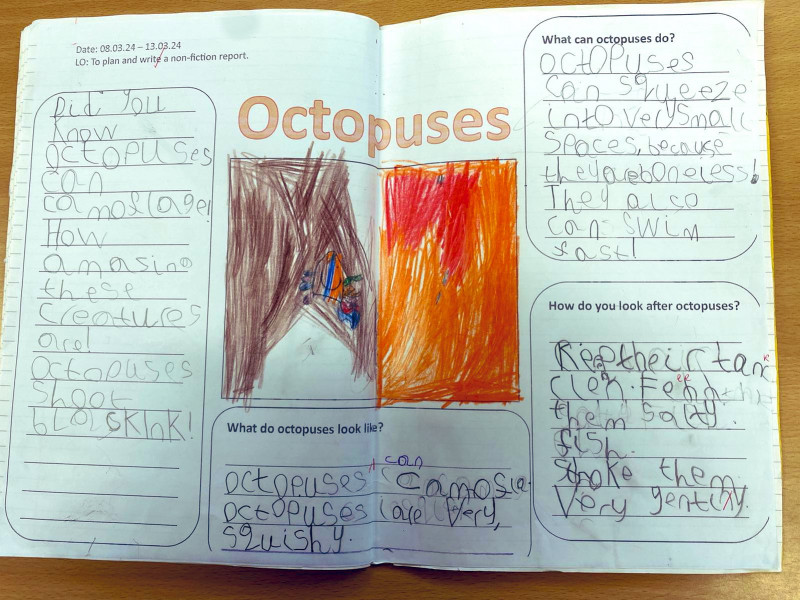 Date: 08.03.24 – 13.03.24
LO: To plan and write a non-fiction report.
Octopuses
Did You
know
octopuses
can
camoflage!
How
amasing
these
creatures
are!
Octopuses
Shoot
blackInk!
What do octopuses look like?
can
octopuses camofla.
octopuses are very,
squishy.
What can octopuses do?
octopuses
can squeeze
into very small
Spaces, because
they are boneless!
They also
can swim
fast!
How do you look after octopuses?
Keep their tank
clen. Feed
them salty
fish.
Stroke them
Very gently.